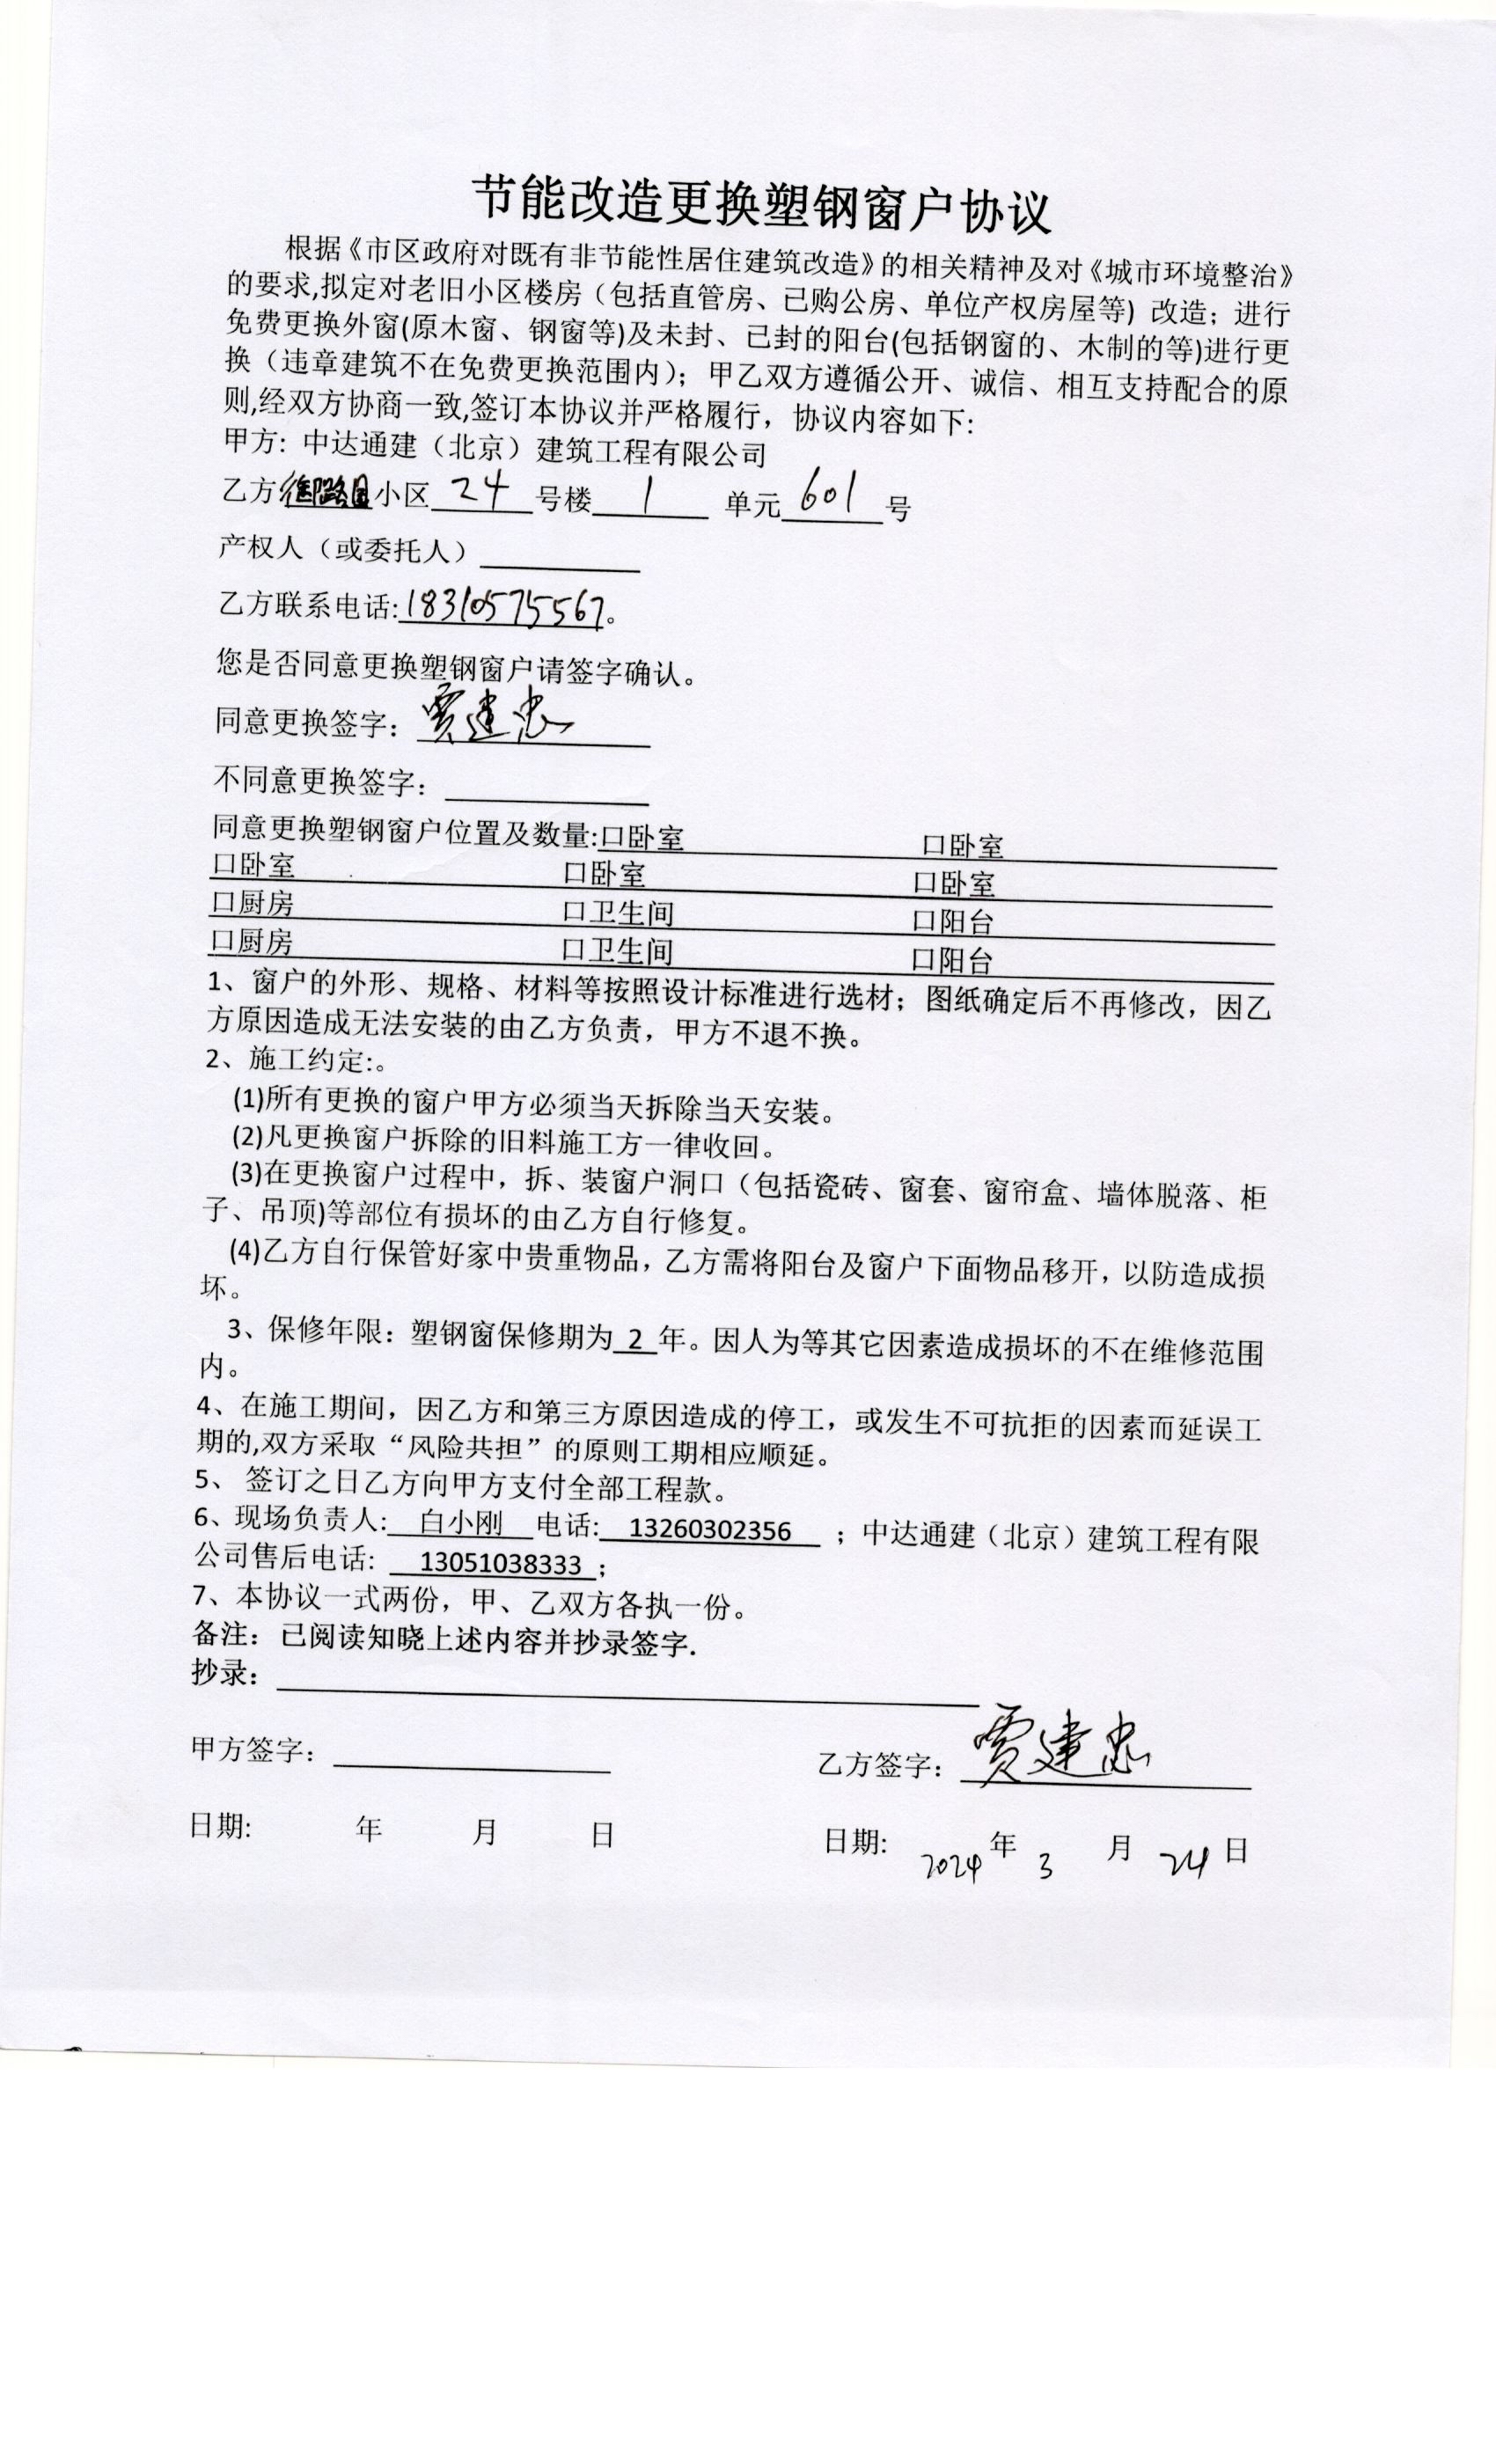 节能改造更换塑钢窗户协议
根据《市区政府对既有非节能性居住建筑改造》的相关精神及对《城市环境整治》
的要求,拟定对老旧小区楼房（包括直管房、已购公房、单位产权房屋等）改造；进行
免费更换外窗(原木窗、钢窗等)及未封、已封的阳台(包括钢窗的、木制的等)进行更
换（违章建筑不在免费更换范围内）；甲乙双方遵循公开、诚信、相互支持配合的原
则,经双方协商一致,签订本协议并严格履行，协议内容如下:
甲方: 中达通建（北京）建筑工程有限公司
乙方 小区 24 号楼 1 单元 601 号
产权人（或委托人）
乙方联系电话:18310575567。
您是否同意更换塑钢窗户请签字确认。
同意更换签字： 贾建忠
不同意更换签字：
同意更换塑钢窗户位置及数量:口卧室 口卧室
口卧室 口卧室 口卧室
口厨房 口卫生间 口阳台
口厨房 口卫生间 口阳台
1、窗户的外形、规格、材料等按照设计标准进行选材；图纸确定后不再修改，因乙
方原因造成无法安装的由乙方负责，甲方不退不换。
2、施工约定:。
(1)所有更换的窗户甲方必须当天拆除当天安装。
(2)凡更换窗户拆除的旧料施工方一律收回。
(3)在更换窗户过程中，拆、装窗户洞口（包括瓷砖、窗套、窗帘盒、墙体脱落、柜
子、吊顶)等部位有损坏的由乙方自行修复。
(4)乙方自行保管好家中贵重物品，乙方需将阳台及窗户下面物品移开，以防造成损
坏。
3、保修年限：塑钢窗保修期为 2 年。因人为等其它因素造成损坏的不在维修范围
内。
4、在施工期间，因乙方和第三方原因造成的停工，或发生不可抗拒的因素而延误工
期的,双方采取“风险共担”的原则工期相应顺延。
5、 签订之日乙方向甲方支付全部工程款。
6、现场负责人: 白小刚 电话: 13260302356 ；中达通建（北京）建筑工程有限
公司售后电话: 13051038333 ；
7、本协议一式两份，甲、乙双方各执一份。
备注：已阅读知晓上述内容并抄录签字.
抄录：
甲方签字： 乙方签字： 贾建忠
日期: 年 月 日 日期: 2024 年 3 月 24 日